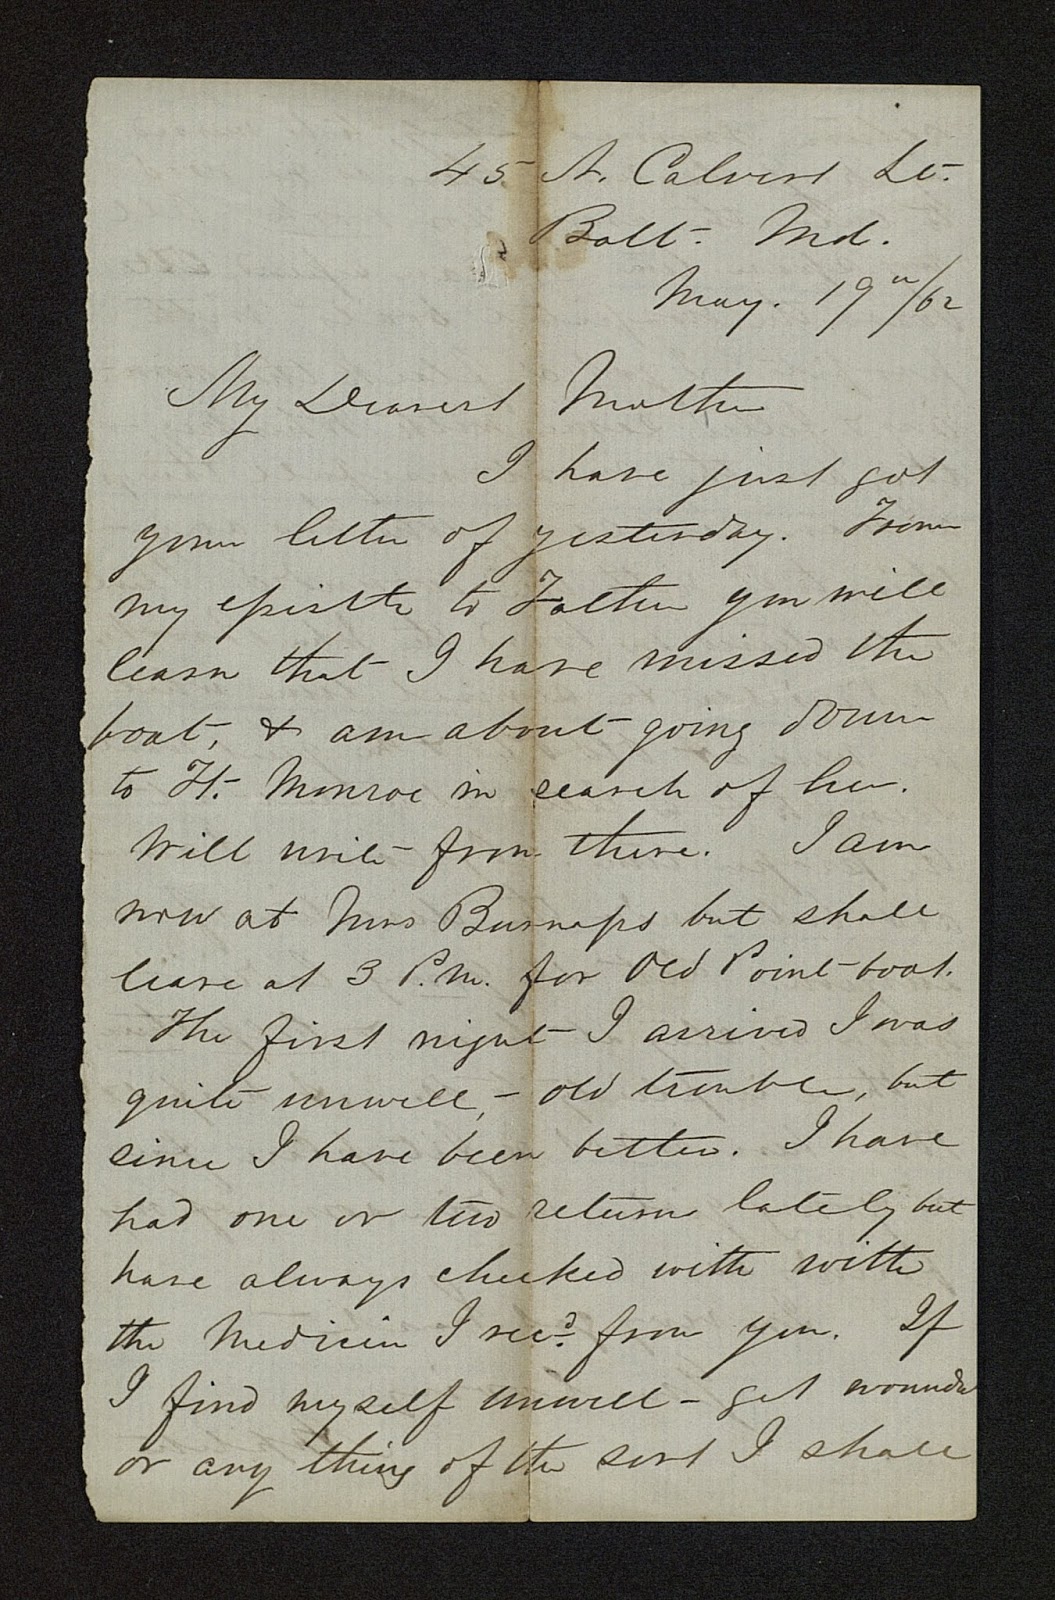 45 N. Calvert St.
Balt. Md.
May. 19th/62
My Dearest Mother
I have just got
your letter of yesterday. From
my epistle to Father you will
learn that I have missed the
boat, & am about going down
to Ft. Monroe in search of her.
Will write from there. I am
now at Mrs Burnaps but shall
leave at 3 P.M. for Old Point boat.
The first night I arrived I was
quite unwell, - old trouble, but
since I have been better. I have
had one or two returns lately but
have always checked with with
the Medicin I recd. from you. If
I find myself unwell - get wounded
or any thing of the sort I shall